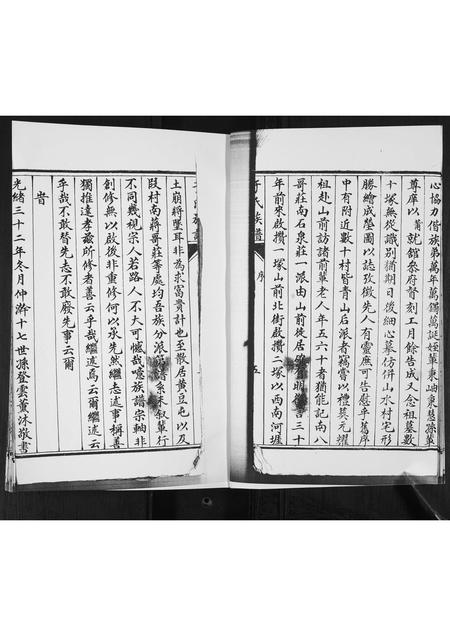 心協力偕族弟萬年萬鐲萬誕姪肇東岫慶慧孫肇
尊庫以 貲就鎦泰府督刻工月餘告成又念祖墓數
十塚無從識別猶期日後細心摹仿併山水村宅形
勝繪成塋圖以誌攷徵先人有靈庶可告慰乎萬序
中有附近數十村皆青山后派者竊嘗以禮莫元耀
祖赴山前訪諸前輩老人年五六十者猶能記南八
哥莊南石泉莊一派由山前徙居 明 三十
年前來啟攢一塚山前北街啟攢二塚以西南河堐
氏族譜 序 五
族譜
土崩將墜耳非為求富貴計也至散居黃豆屯以及
歧村南蔣哥莊等處均吾族分派 系未叙輩行
不同幾視宗人若路人不大可憾哉噫族譜宗軸非
創修無以啟後非重修何以承先然繼志述事稱善
獨推達孝兹所修者善云乎哉繼述焉云爾繼述云
乎哉不敢替先志不敢廢先事云爾
旹
光緒三十二年冬月仲澣十七世孫登雲薰沐敬書